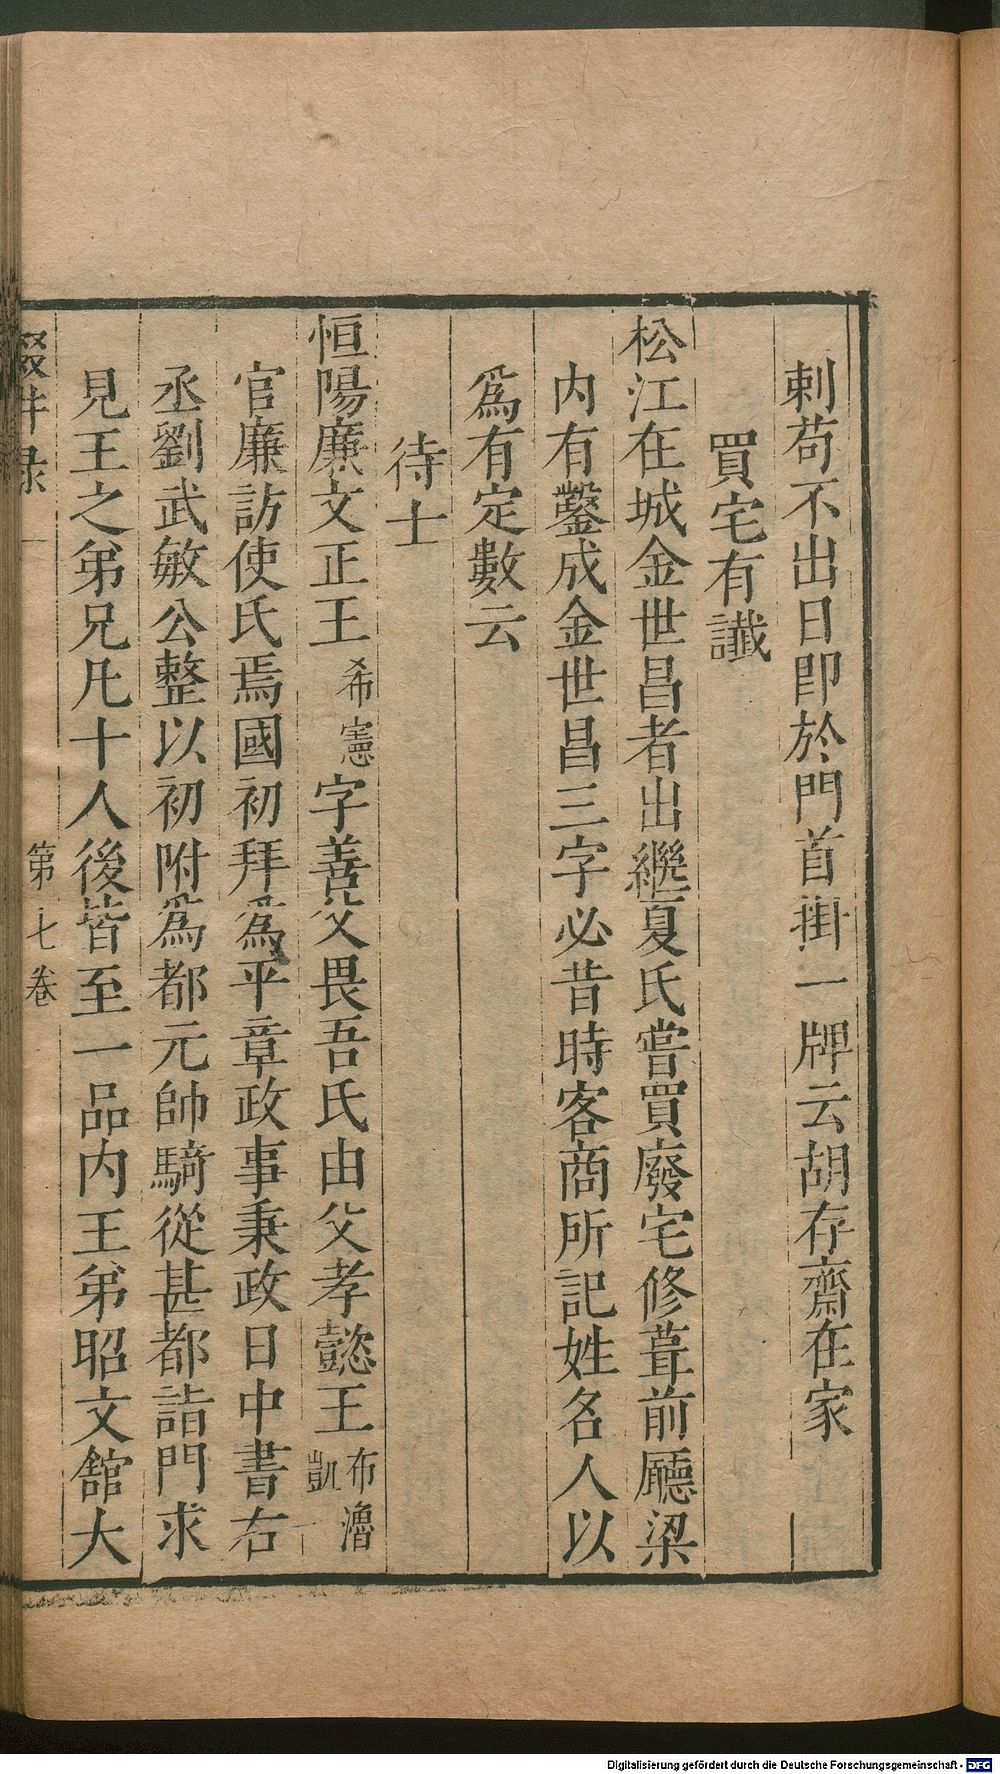 刺苟不出日即於門首掛一牌云胡存齋在家
買宅有讖
松江在城金世昌者出繼夏氏嘗買廢宅修葺前廳梁
内有鑿成金世昌三字必昔時客商所記姓名人以
為有定數云
待士
恒陽廉文正王希憲字善父畏吾氏由父孝懿王布魯凱
官廉訪使氏焉國初拜為平章政事秉政日中書右
丞劉武敏公整以初附為都元帥騎從甚都詣門求
見王之弟兄凡十人後皆至一品内王弟昭文館大
輟畊录
第七卷
Digitalisierung gefördert durch die Deutsche Forschungsgemeinschaft - DFG